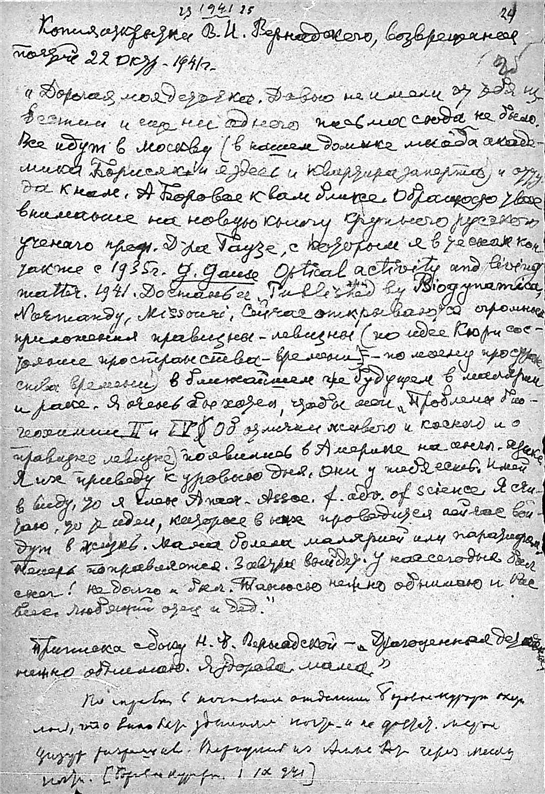 23 1941 25
24
Копия открытки В. И. Вернадского, возвращенная
почтой 22 окт. 1941 г.
25
„Дорогая моя девочка. Давно не имели от тебя из-
вестий и еще ни одного письма сюда не было.
Все идут в Москву (в нашем домике школа акаде-
мика Борисяка и я здесь и квартира заперта) и отту-
да к нам. А Боровое к вам ближе. Обращаю твое
внимание на новую книгу крупного русского
ученого проф. Д-ра Гаузе, с которым я в тесном кон-
такте с 1935 г. G. Gause Optical activity and living
matter. 1941. Достань ее. Published by Biodynamica,
Normandy, Missouri. Сейчас открываются огромные
приложения правизны-левизны (по идее Кюри сос-
тояние пространства-времени – по моему простран-
ства времени) в ближайшем же будущем в малярии
и раке. Я очень бы хотел, чтобы мои „Проблемы био-
геохимии II и IV (Об отличии живого и косного и о
правизне левизне) появились в Америке на англ. языке
Я их приведу к уровню дня. Они у тебя есть. Имей
в виду, что я член Амер. Assoc. f. adv. of science. Я счи-
таю, что те идеи, которые в них проводятся сейчас вой-
дут в жизнь. Мама болела малярией или паратифом.
Теперь поправляется. Завтра выйдет. У нас сегодня был
снег! недолго и был. Танюсю нежно обнимаю и вас
всех. Любящий отец и дед."
Приписка сбоку Н. Е. Вернадской – „Драгоценная де
нежно обнимаю. Я здорова. мама."
По справке в почтовом отделении Боровое курорт
что
и не
через месяц
[Боровое Курорт. 1 IX 941]